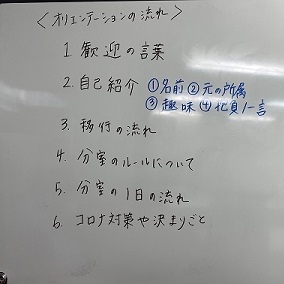 ＜オリエンテーションの流れ＞
1. 歓迎の言葉
2. 自己紹介 ①名前 ②元の所属
③趣味 ④ 一言
3. 移行の流れ
4. 分室のルールについて
5. 分室の1日の流れ
6. コロナ対策や決まりごと